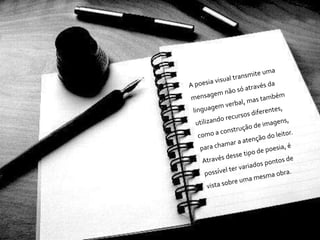 A poesia visual transmite uma
mensagem não só através da
linguagem verbal, mas também
utilizando recursos diferentes,
como a construção de imagens,
para chamar a atenção do leitor.
Através desse tipo de poesia, é
possível ter variados pontos de
vista sobre uma mesma obra.